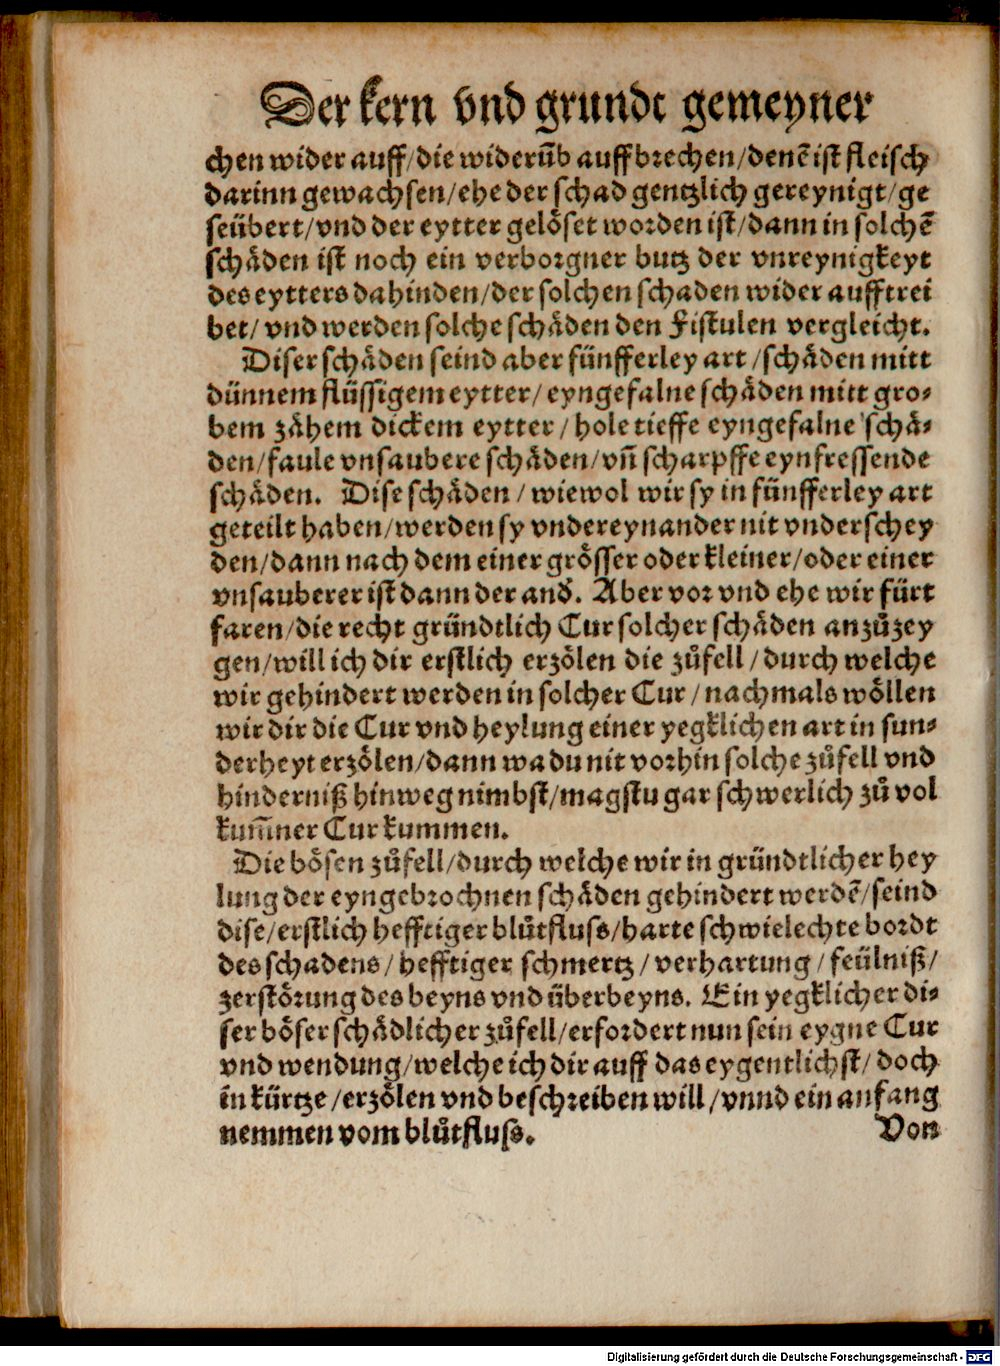 Der kern vnd grundt gemeyner
chen wider auff/die widerūb auffbrechen/denē ist fleisch
darinn gewachsen/ehe der schad gentzlich gereynigt/ge
seübert/vnd der eytter gelöset worden ist/dann in solchē
schäden ist noch ein verborgner butz der vnreynigkeyt
des eytters dahinden/der solchen schaden wider aufftrei
bet/vnd werden solche schäden den Fistulen vergleicht.
Diser schäden seind aber fünfferley art/schäden mitt
dünnem flüssigem eytter/eyngefalne schäden mitt gro-
bem zähem dickem eytter/hole tieffe eyngefalne schä-
den/faule vnsaubere schäden/vñ scharpffe eynfressende
schäden. Dise schäden/wiewol wir sy in fünfferley art
geteilt haben/werden sy vndereynander nit vnderschey
den/dann nach dem einer grösser oder kleiner/oder einer
vnsauberer ist dann der and̕. Aber vor vnd ehe wir fürt
faren/die recht gründtlich Cur solcher schäden anzůzey
gen/will ich dir erstlich erzölen die zůfell/durch welche
wir gehindert werden in solcher Cur/nachmals wöllen
wir dir die Cur vnd heylung einer yegklichen art in sun-
derheyt erzölen/dann wa du nit vorhin solche zůfell vnd
hinderniß hinweg nimbst/magstu gar schwerlich zů vol
kum̄ner Cur kummen.
Die bösen zůfell/durch welche wir in gründtlicher hey
lung der eyngebrochnen schäden gehindert werdē/seind
dise/erstlich hefftiger blůtfluss/harte schwielechte bordt
des schadens/hefftiger schmertz/verhartung/feülniß/
zerstörung des beyns vnd überbeyns. Ein yegklicher di-
ser böser schädlicher zůfell/erfordert nun sein eygne Cur
vnd wendung/welche ich dir auff das eygentlichst/doch
in kürtze/erzölen vnd beschreiben will/vnnd ein anfang
nemmen vom blůtfluss.
Von
Digitalisierung gefördert durch die Deutsche Forschungsgemeinschaft - DFG